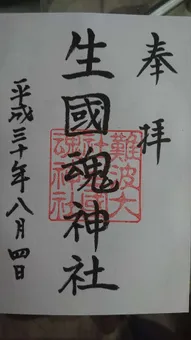 奉拝
生國魂神社
難波大社生國魂神社
平成三十年八月四日